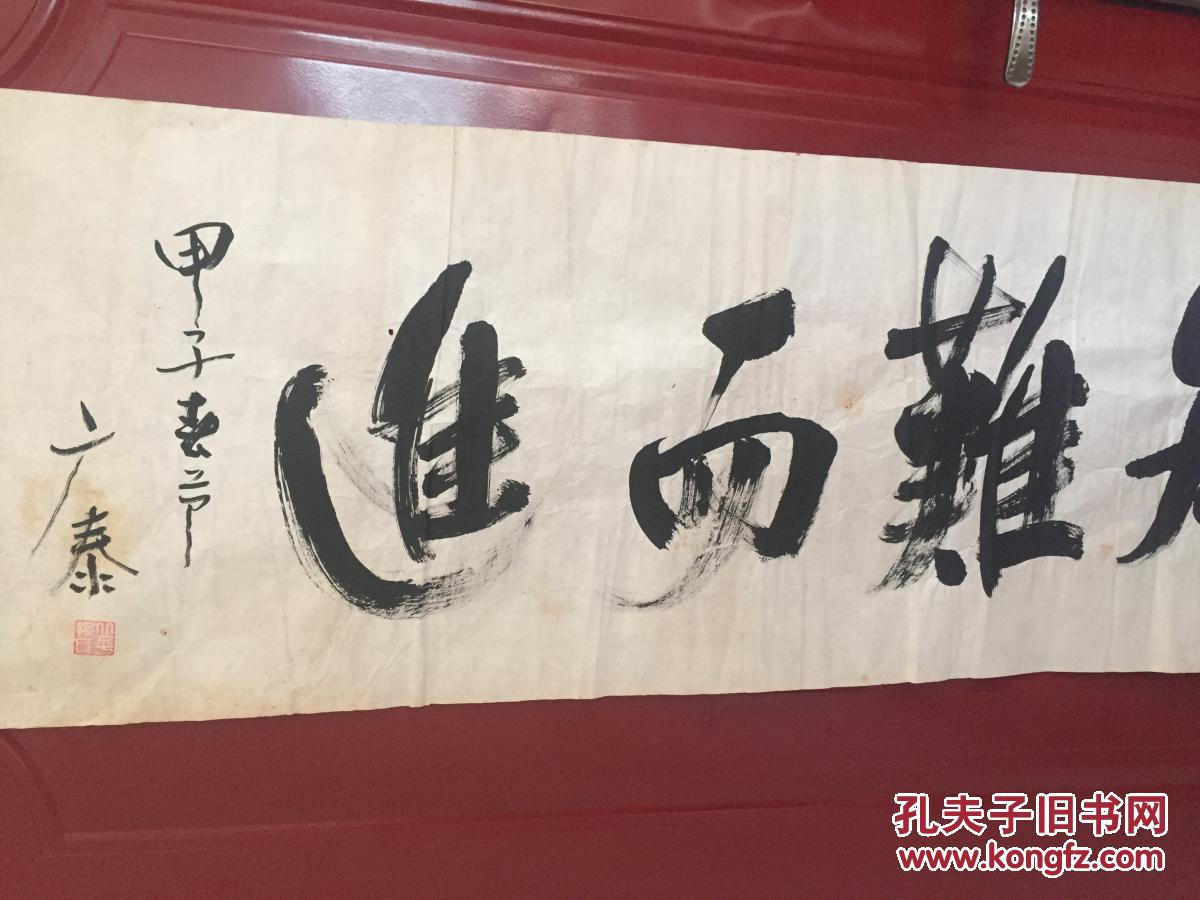 難而進
甲子春节
广泰
孔夫子旧书网
www.kongfz.com